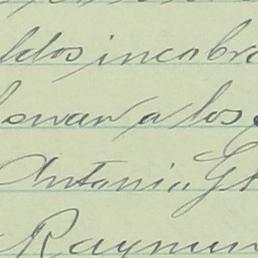 ldos incobra
levan a los
Antonio G
Raymun